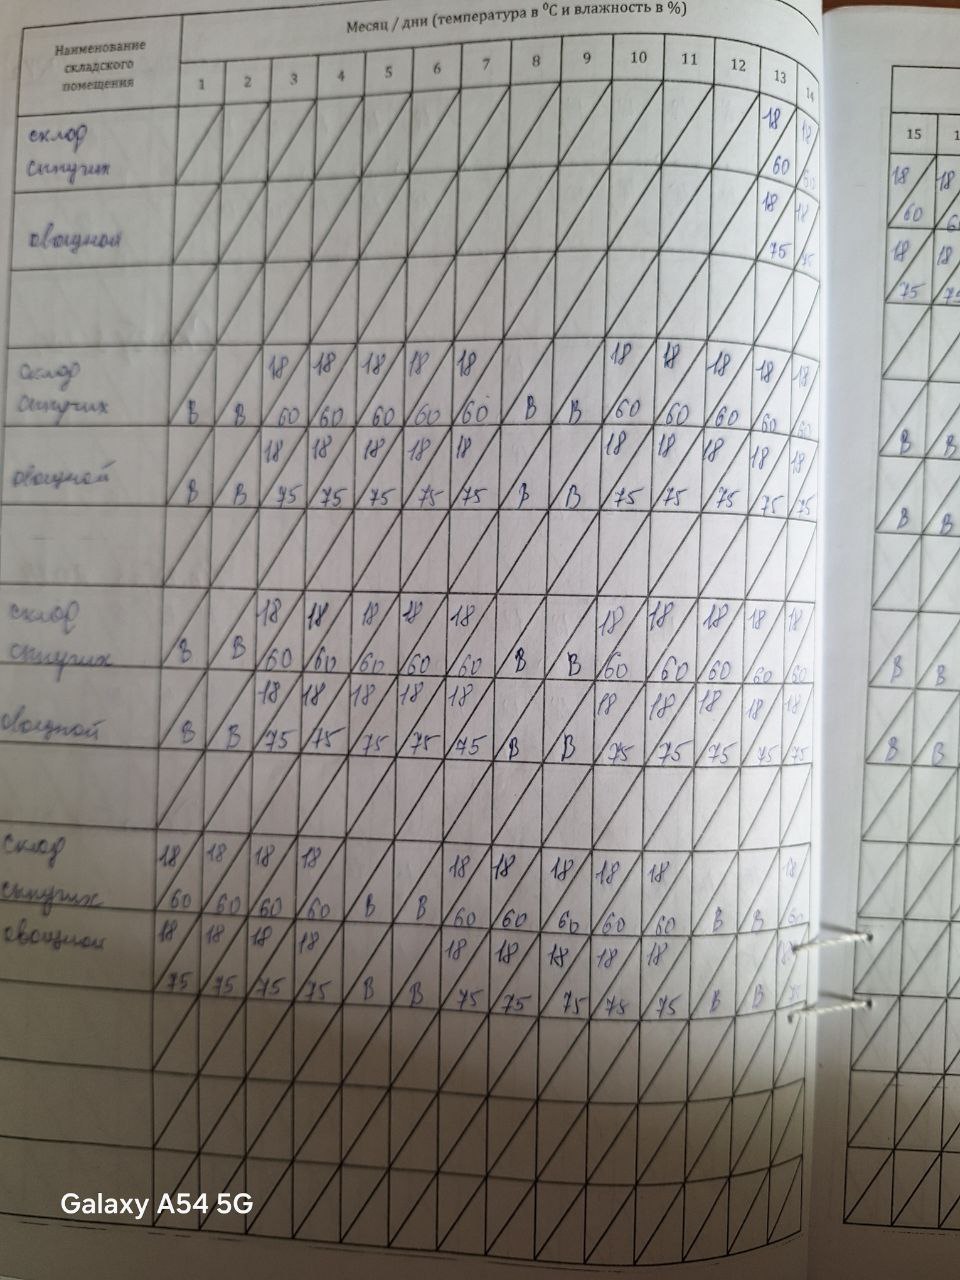 Месяц / дни (температура в ⁰С и влажность в %)
Наименование
складского
помещения
1 2 3 4 5 6 7 8 9 10 11 12 13 14
15
склад 18 18
сыпучих 60 60
18 18
60 6
овощной 18 18
75 75
18 18
75 75
склад 18 18 18 18 18 18 18 18 18 18
сыпучих В В 60 60 60 60 60 В В 60 60 60 60 60
В В
18 18 18 18 18 18 18 18 18 18
овощной В В 75 75 75 75 75 В В 75 75 75 75 75
В В
склад 18 18 18 18 18 18 18 18 18 18
сыпучих В В 60 60 60 60 60 В В 60 60 60 60 60
В В
18 18 18 18 18 18 18 18 18 18
овощной В В 75 75 75 75 75 В В 75 75 75 75 75
В В
склад 18 18 18 18 18 18 18 18 18 18
сыпучих 60 60 60 60 В В 60 60 60 60 60 В В 60
овощной 18 18 18 18 18 18 18 18 18 18
75 75 75 75 В В 75 75 75 75 75 В В 75
Galaxy A54 5G